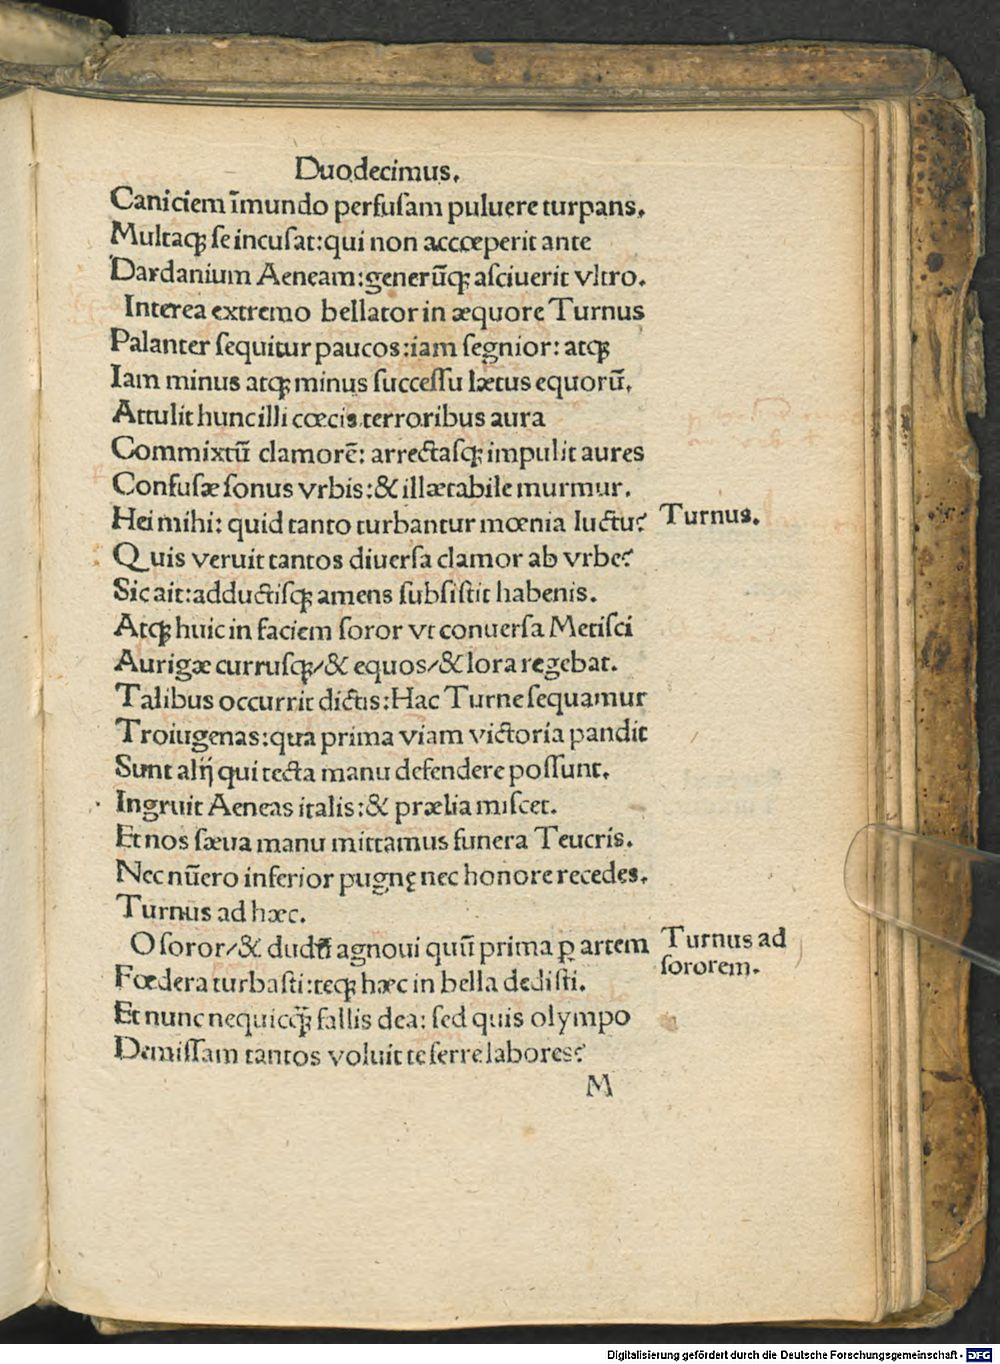 Duodecimus.
Caniciem īmundo perfuſam puluere turpans.
Multaqꝫ ſe incuſat: qui non accœperit ante
Dardanium Aeneam: generūqꝫ aſciuerit vltro.
Interea extremo bellator in æquore Turnus
Palanter ſequitur paucos: iam ſegnior: atqꝫ
Iam minus atqꝫ minus ſucceſſu lætus equorū.
Attulit hunc illi cœcis terroribus aura
Commixtū clamorē: arrectaſqꝫ impulit aures
Confuſæ ſonus vrbis: & illætabile murmur.
Hei mihi: quid tanto turbantur mœnia luctu?
Turnus.
Quis veruit tantos diuerſa clamor ab vrbe?
Sic ait: adductiſqꝫ amens ſubſiſtit habenis.
Atqꝫ huic in faciem ſoror vt conuerſa Metiſci
Aurigæ curruſqꝫ/& equos/& lora regebat.
Talibus occurrit dictis: Hac Turne ſequamur
Troiugenas: qua prima viam victoria pandit
Sunt alij qui tecta manu defendere poſſunt.
Ingruit Aeneas italis: & prælia miſcet.
Et nos ſæua manu mittamus funera Teucris.
Nec nūero inferior pugnę nec honore recedes.
Turnus ad hæc.
O ſoror/& dudū agnoui quū prima ꝑ artem
Turnus ad
ſororem.
Fœdera turbaſti: teqꝫ hæc in bella dediſti.
Et nunc nequicq̄ꝫ fallis dea: ſed quis olympo
Demiſſam tantos voluit te ferre labores?
M
Digitalisierung gefördert durch die Deutsche Forschungsgemeinschaft - DFG